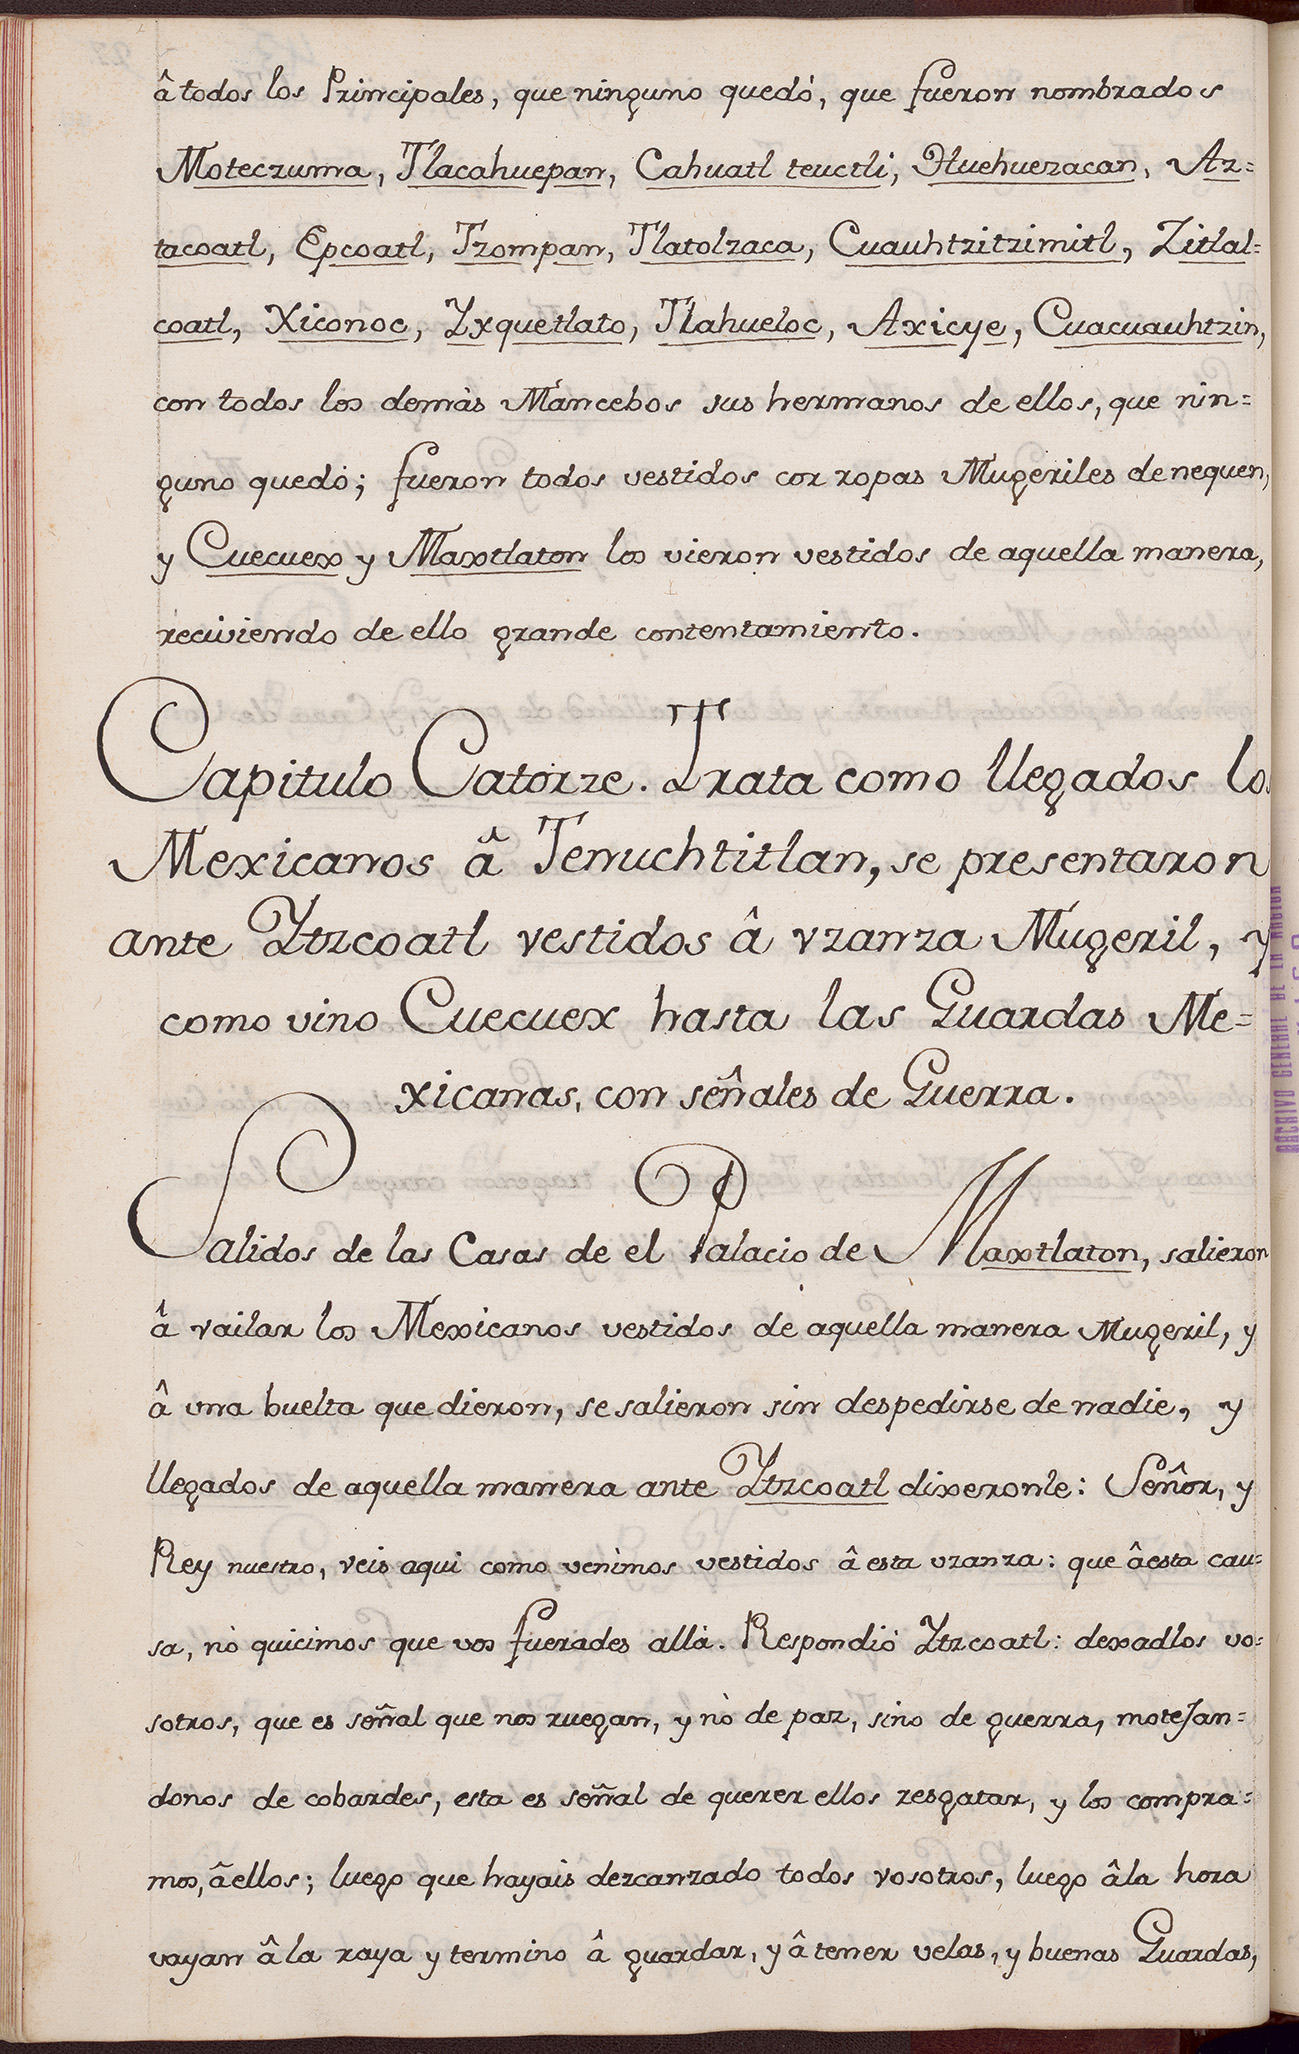 â todos los Principales, que ninguno quedó, que fueron nombrados
Moteczuma, Tlacahuepan, Cahuatl teuctli, Huehuezacan, Az=
tacoatl, Epcoatl, Tzompan, Tlatolzaca, Cuauhtzitzimitl, Zitlal=
coatl, Xiconoc, Yxquetlato, Tlahueloc, Axicye, Cuacuauhtzin,
con todos los demàs Mancebos sus hermanos de ellos, que nin=
guno quedó; fueron todos vestidos cor ropas Mugeriles de nequen,
y Cuecuex y Maxtlaton los vieron vestidos de aquella manera,
reciviendo de ello grande contentamiento.
Capitulo Catorze. Trata como llegados los
Mexicanos â Tenuchtitlan, se presentaron
ante Ytzcoatl vestidos â vzanza Mugeril, y
como vino Cuecuex hasta las Guardas Me=
xicanas, con señales de Guerra.
Salidos de las Casas de el Palacio de Maxtlaton, salieron
â vailar los Mexicanos vestidos de aquella manera Mugeril, y
â una buelta que dieron, se salieron sin despedirse de nadie, y
llegados de aquella manera ante Ytzcoatl dixeronle: Señor, y
Rey nuestro, veis aqui como venimos vestidos â esta vzanza: que âesta cau=
sa, nò quicimos que vos fuerades allà. Respondió Ytzcoatl: dexadlos vo=
sotros, que es señal que nos ruegan, y nò de paz, sino de guerra, motejan=
donos de cobardes, esta es señal de querer ellos resgatar, y los compra=
mos, âellos; luego que hayais dezcanzado todos vosotros, luego âla hora
vayan âla raya y termino â guardar, y â tener velas, y buenas Guardas,
ARCHIVO GENERAL DE LA NACION